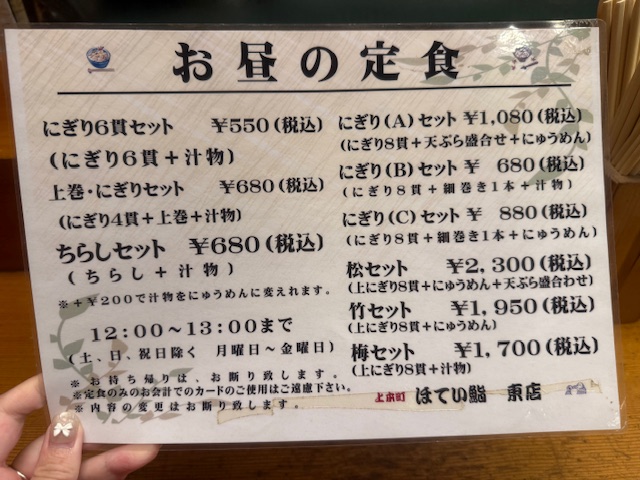 お昼の定食
にぎり6貫セット ￥550(税込)
(にぎり6貫＋汁物)
上巻・にぎりセット ￥680(税込)
(にぎり4貫＋上巻＋汁物)
ちらしセット ￥680(税込)
(ちらし＋汁物)
※＋￥200で汁物をにゅうめんに変えれます。
12:00～13:00まで
(土、日、祝日除く 月曜日～金曜日)
※お持ち帰りは、お断り致します。
※定食のみのお会計でのカードのご使用はご遠慮下さい。
※内容の変更はお断り致します。
にぎり(A)セット ￥1,080(税込)
(にぎり8貫＋天ぷら盛合せ＋にゅうめん)
にぎり(B)セット ￥ 680(税込)
(にぎり8貫＋細巻き1本＋汁物)
にぎり(C)セット ￥ 880(税込)
(にぎり8貫＋細巻き1本＋にゅうめん)
松セット ￥2,300(税込)
(上にぎり8貫＋にゅうめん＋天ぷら盛合わせ)
竹セット ￥1,950(税込)
(上にぎり8貫＋にゅうめん)
梅セット ￥1,700(税込)
(上にぎり8貫＋汁物)
上本町 ほてい鮨 東店